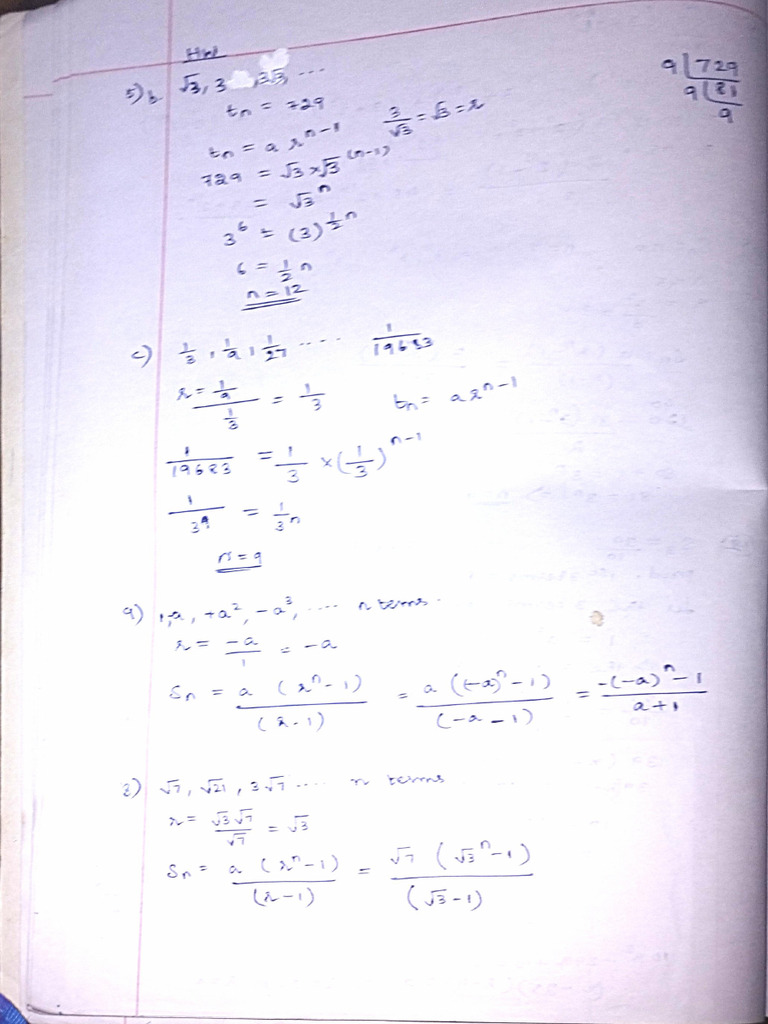 HW
5) b √3, 3, 3√3, ...
9 | 729
9 | 81
9
tn = 729
tn = a r^(n-1)    3/√3 = √3 = r
729 = √3 × √3^(n-1)
= √3^n
3^6 = (3)^(1/2 n)
6 = 1/2 n
n = 12
c) 1/3, 1/9, 1/27 .... 1/19683
r = (1/9)/(1/3) = 1/3    tn = a r^(n-1)
1/19683 = 1/3 × (1/3)^(n-1)
1/3^9 = 1/3^n
n = 9
9) 1, -a, +a², -a³, .... n terms.
r = -a/1 = -a
Sn = a (r^n - 1)/(r-1) = a ((-a)^n - 1)/(-a-1) = -(-a)^n - 1/a+1
8) √7, √21, 3√7 .... n terms
r = √3√7/√7 = √3
Sn = a (r^n - 1)/(r-1) = √7 (√3^n - 1)/(√3 - 1)